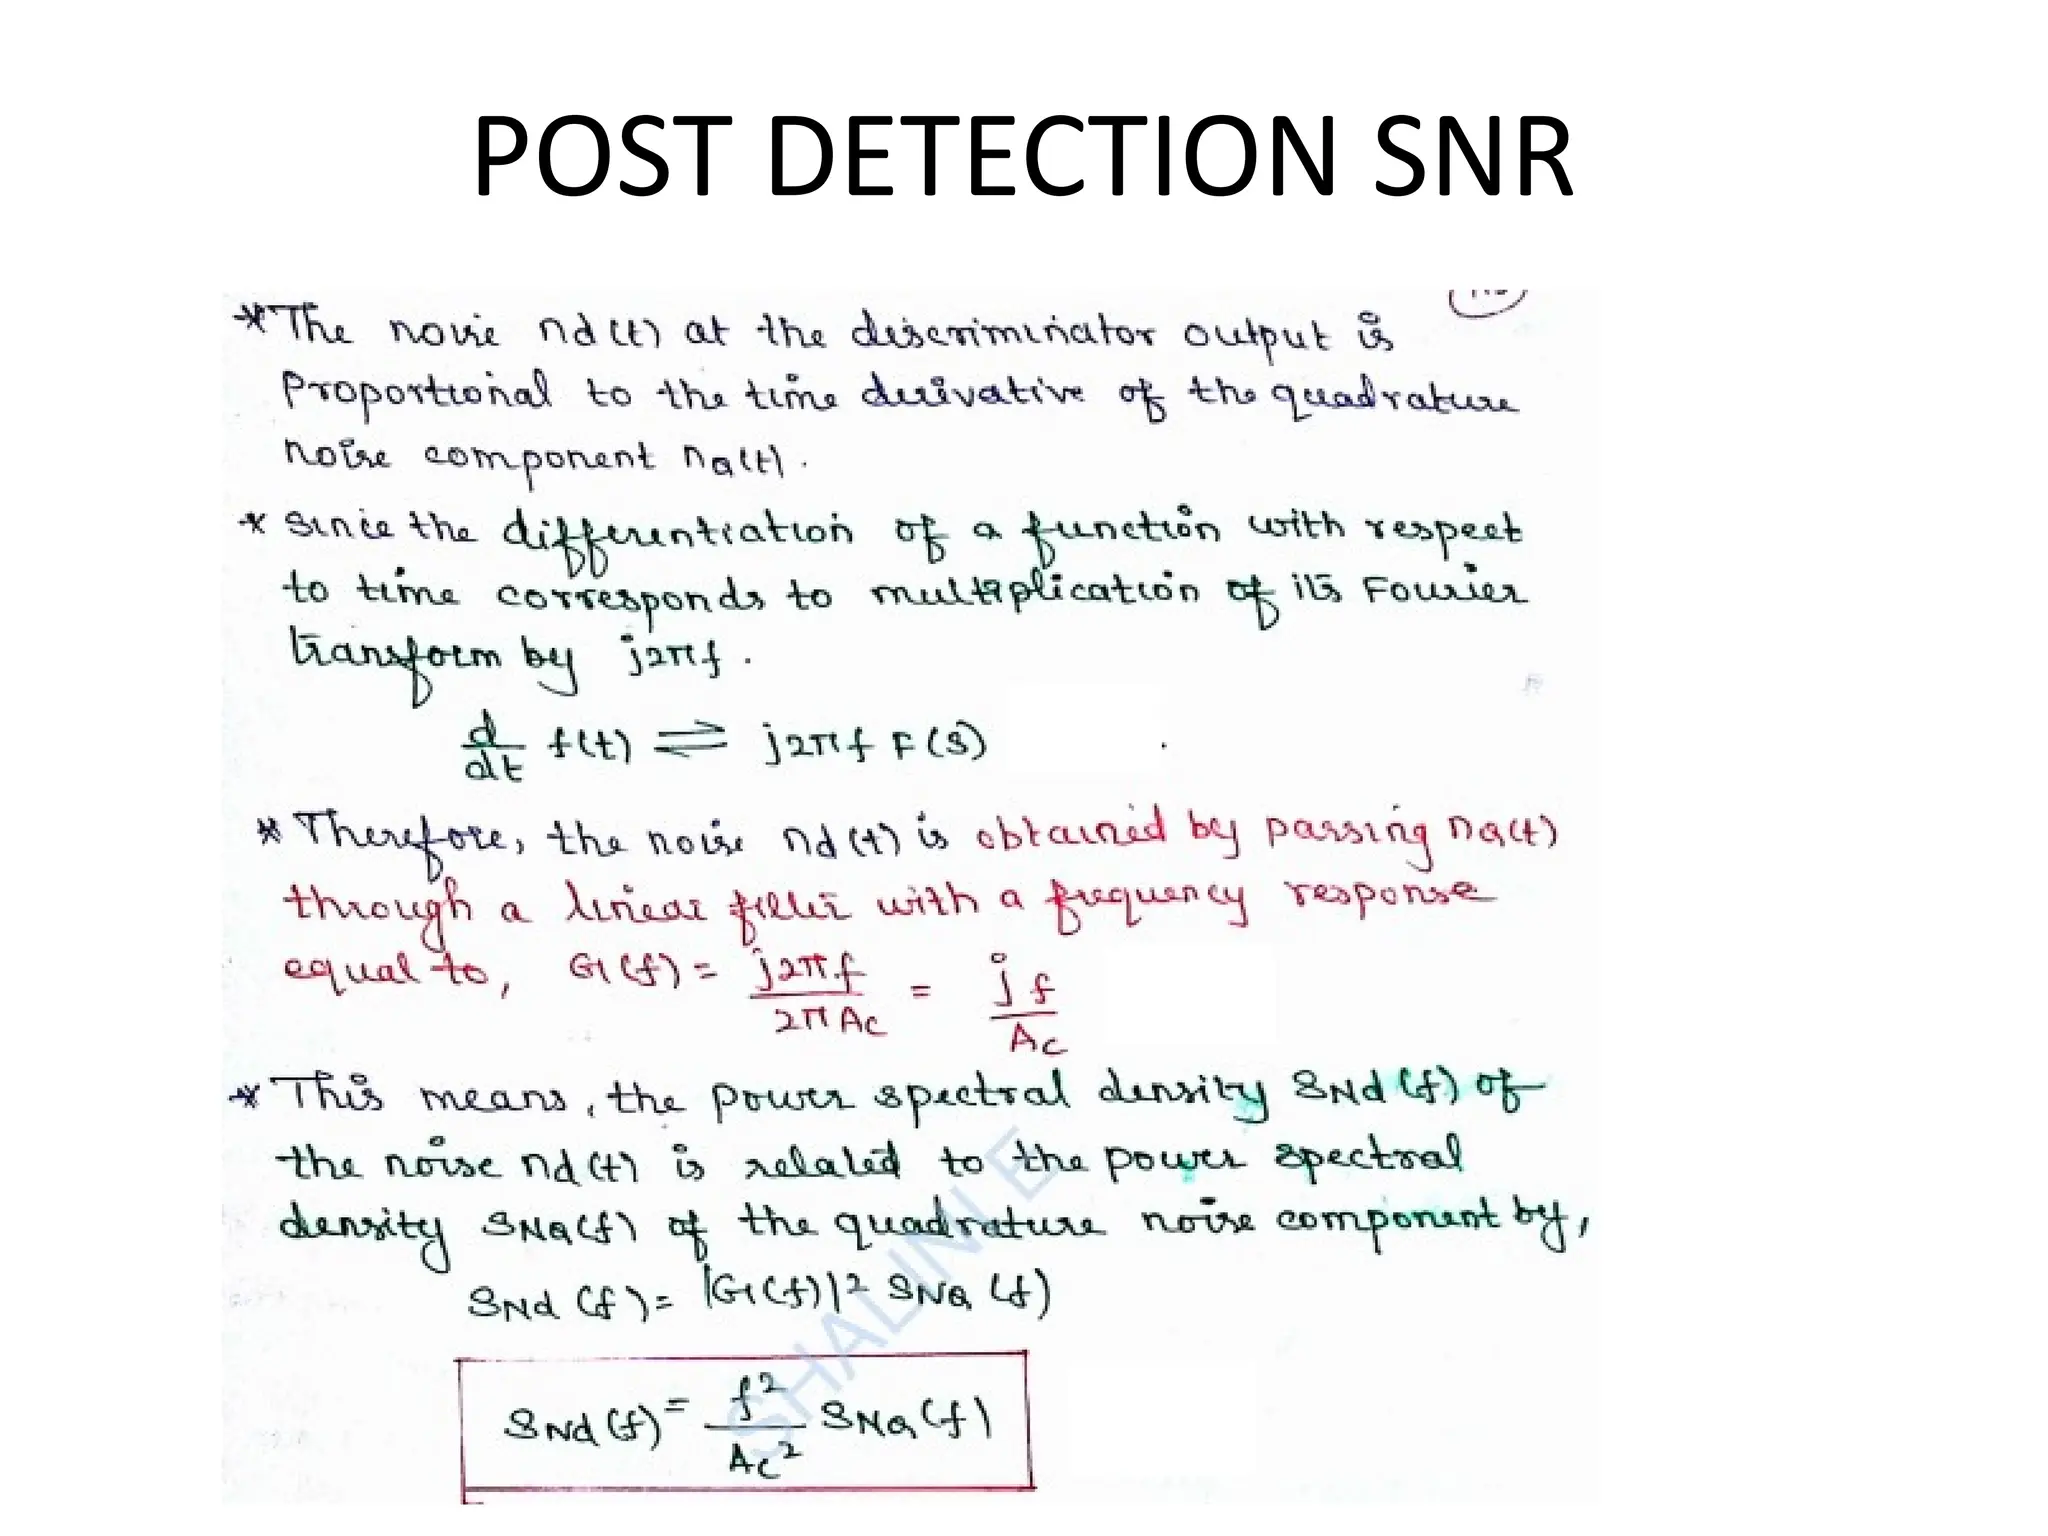 POST DETECTION SNR
*The noise nd(t) at the discriminator output is
Proportional to the time derivative of the quadrature
noise component nQ(t).
* Since the differentiation of a function with respect
to time corresponds to multiplication of its Fourier
transform by j2πf.
d/dt f(t) ⇌ j2πf F(S)
* Therefore, the noise nd(t) is obtained by passing nQ(t)
through a linear filter with a frequency response
equal to, G(f) = j2πf / 2πAc = jf / Ac
* This means, the power spectral density SNd(f) of
the noise nd(t) is related to the power spectral
density SNQ(f) of the quadrature noise component by,
SNd(f) = |G(f)|² SNQ(f)
SNd(f) = f² / Ac² SNQ(f)
SHALINI E